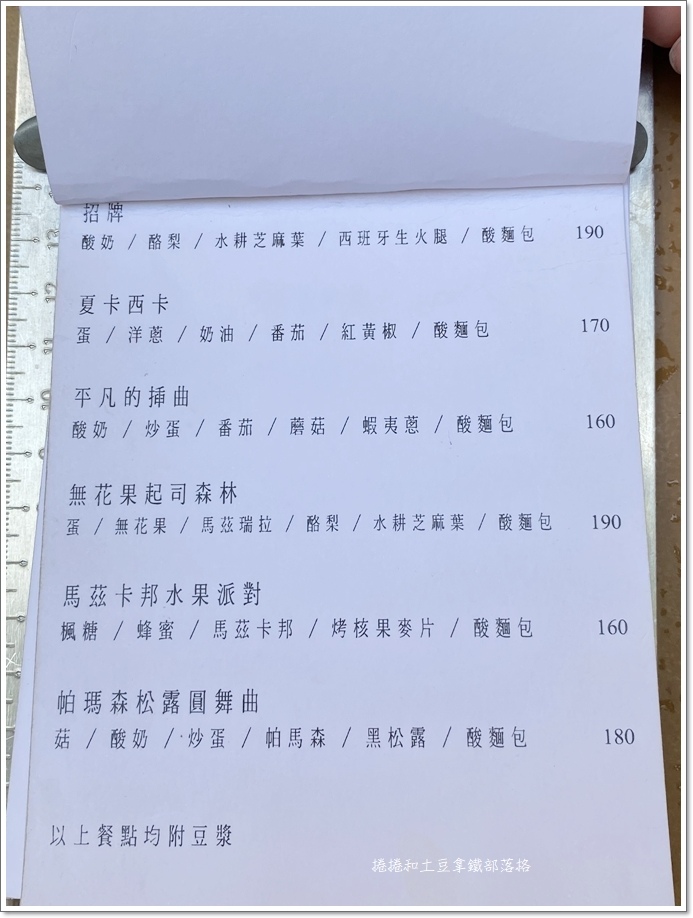 招牌
酸奶 / 酪梨 / 水耕芝麻葉 / 西班牙生火腿 / 酸麵包 190
夏卡西卡
蛋 / 洋蔥 / 奶油 / 番茄 / 紅黃椒 / 酸麵包 170
平凡的插曲
酸奶 / 炒蛋 / 番茄 / 蘑菇 / 蝦夷蔥 / 酸麵包 160
無花果起司森林
蛋 / 無花果 / 馬茲瑞拉 / 酪梨 / 水耕芝麻葉 / 酸麵包 190
馬茲卡邦水果派對
楓糖 / 蜂蜜 / 馬茲卡邦 / 烤核果麥片 / 酸麵包 160
帕瑪森松露圓舞曲
菇 / 酸奶 / 炒蛋 / 帕馬森 / 黑松露 / 酸麵包 180
以上餐點均附豆漿
捲捲和土豆拿鐵部落格